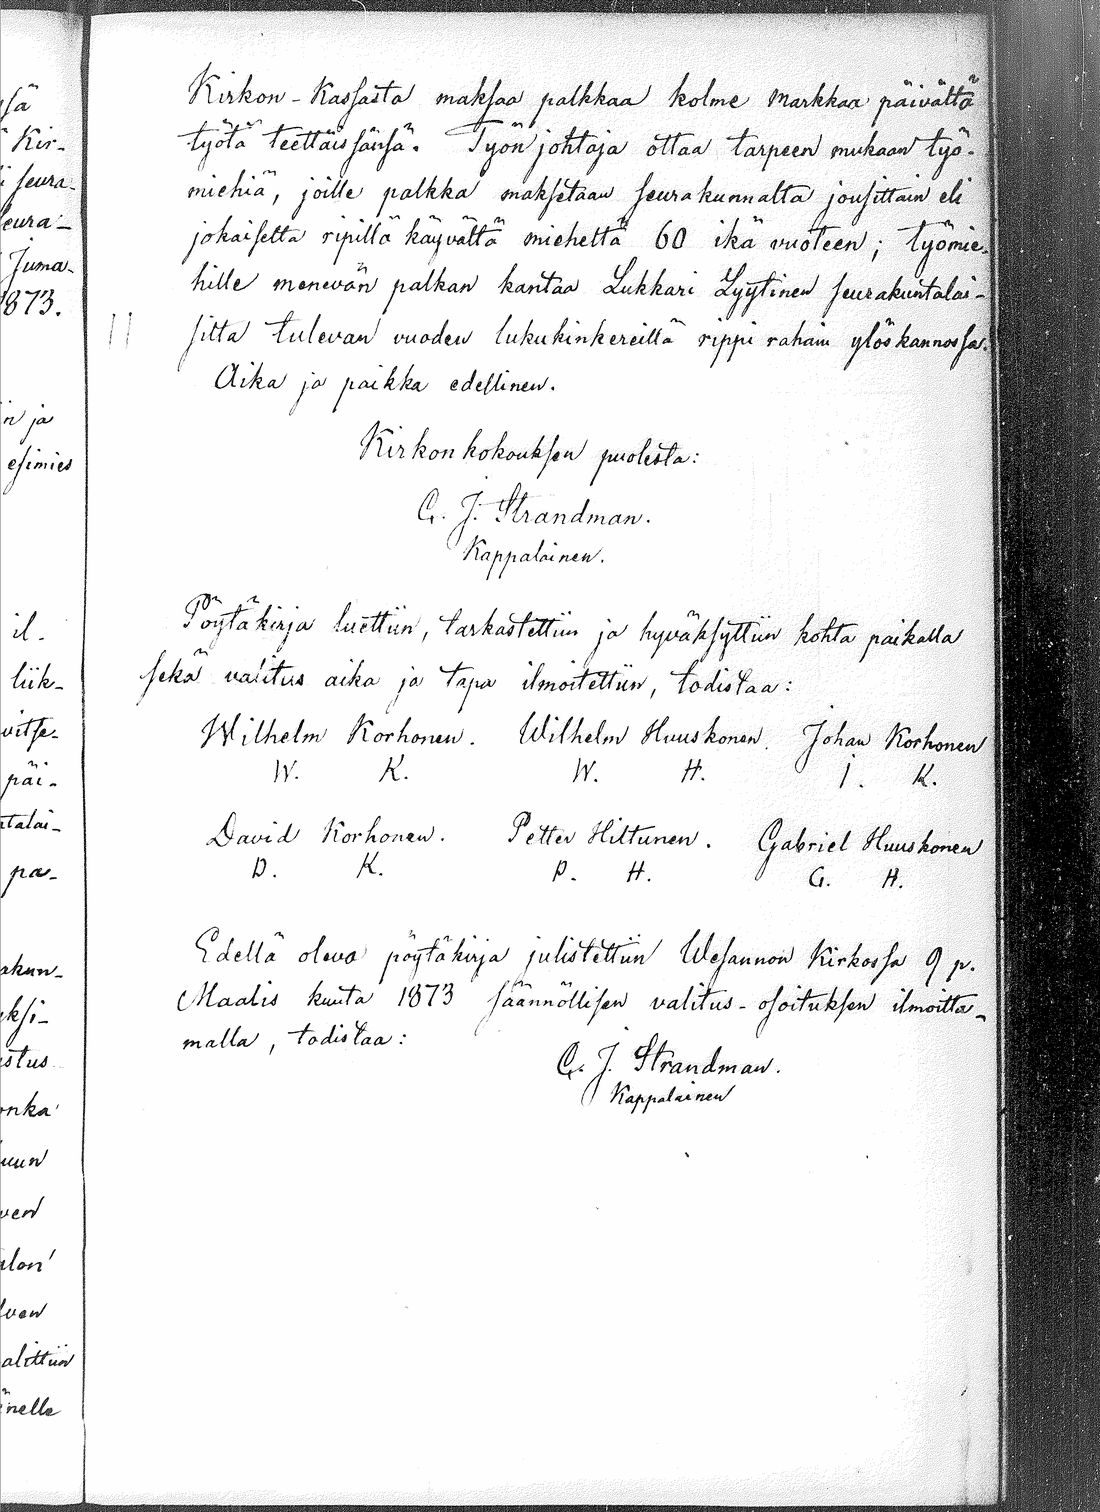 sä
Kir-
seura-
seura-
Juma-
1873.
in ja
esimies
il.
liik-
päi-
pa-
Kirkon-Kassasta maksaa palkkaa kolme markkaa päivältä
työtä teettäissänsä. Työn johtaja ottaa tarpeen mukaan työ-
miehiä, joille palkka maksetaan seurakunnalta jousittain eli
jokaiselta ripillä käyvältä mieheltä 60 ikä vuoteen; työmie-
hille menevän palkan kantaa Lukkari Lyytinen seurakuntalai-
silta tulevan vuoden lukukinkereillä rippi rahain ylöskannossa.
Aika ja paikka edellinen.
Kirkonkokouksen puolesta:
G. J. Strandman.
Kappalainen.
Pöytäkirja luettiin, tarkastettiin ja hyväksyttiin kohta paikalla
sekä valitus aika ja tapa ilmoitettiin, todistaa:
Wilhelm Korhonen. Wilhelm Huuskonen. Johan Korhonen
W. K. W. H. J. K.
David Korhonen. Petter Hiltunen. Gabriel Huuskonen
D. K. P. H. G. H.
Edellä oleva pöytäkirja julistettiin Wesannon Kirkossa 9 p.
Maalis kuuta 1873 säännöllisen valitus-osoituksen ilmoitta-
malla, todistaa:
G. J. Strandman.
Kappalainen